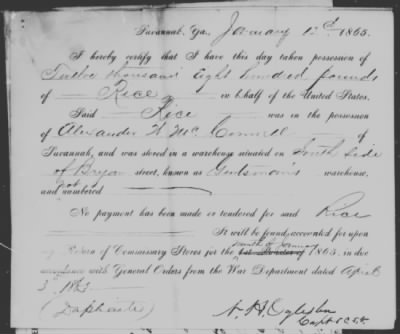 Savannah, Ga., January 12th 1865.
I hereby certify that I have this day taken possession of
Twelve thousand eight hundred pounds
of Rice on behalf of the United States.
Said Rice was in the possession
of Alexander W McConnell of
Savannah, and was stored in a warehouse situated on South Side
of Bryan street, known as warehouse,
and not numbered
No payment has been made or tendered for said Rice
It will be found accounted for upon
my Return of Commissary Stores for the month of January 1865, in due
accordance with General Orders from the War Department dated April
3d 1863
(Duplicate)
Capt & C.S.